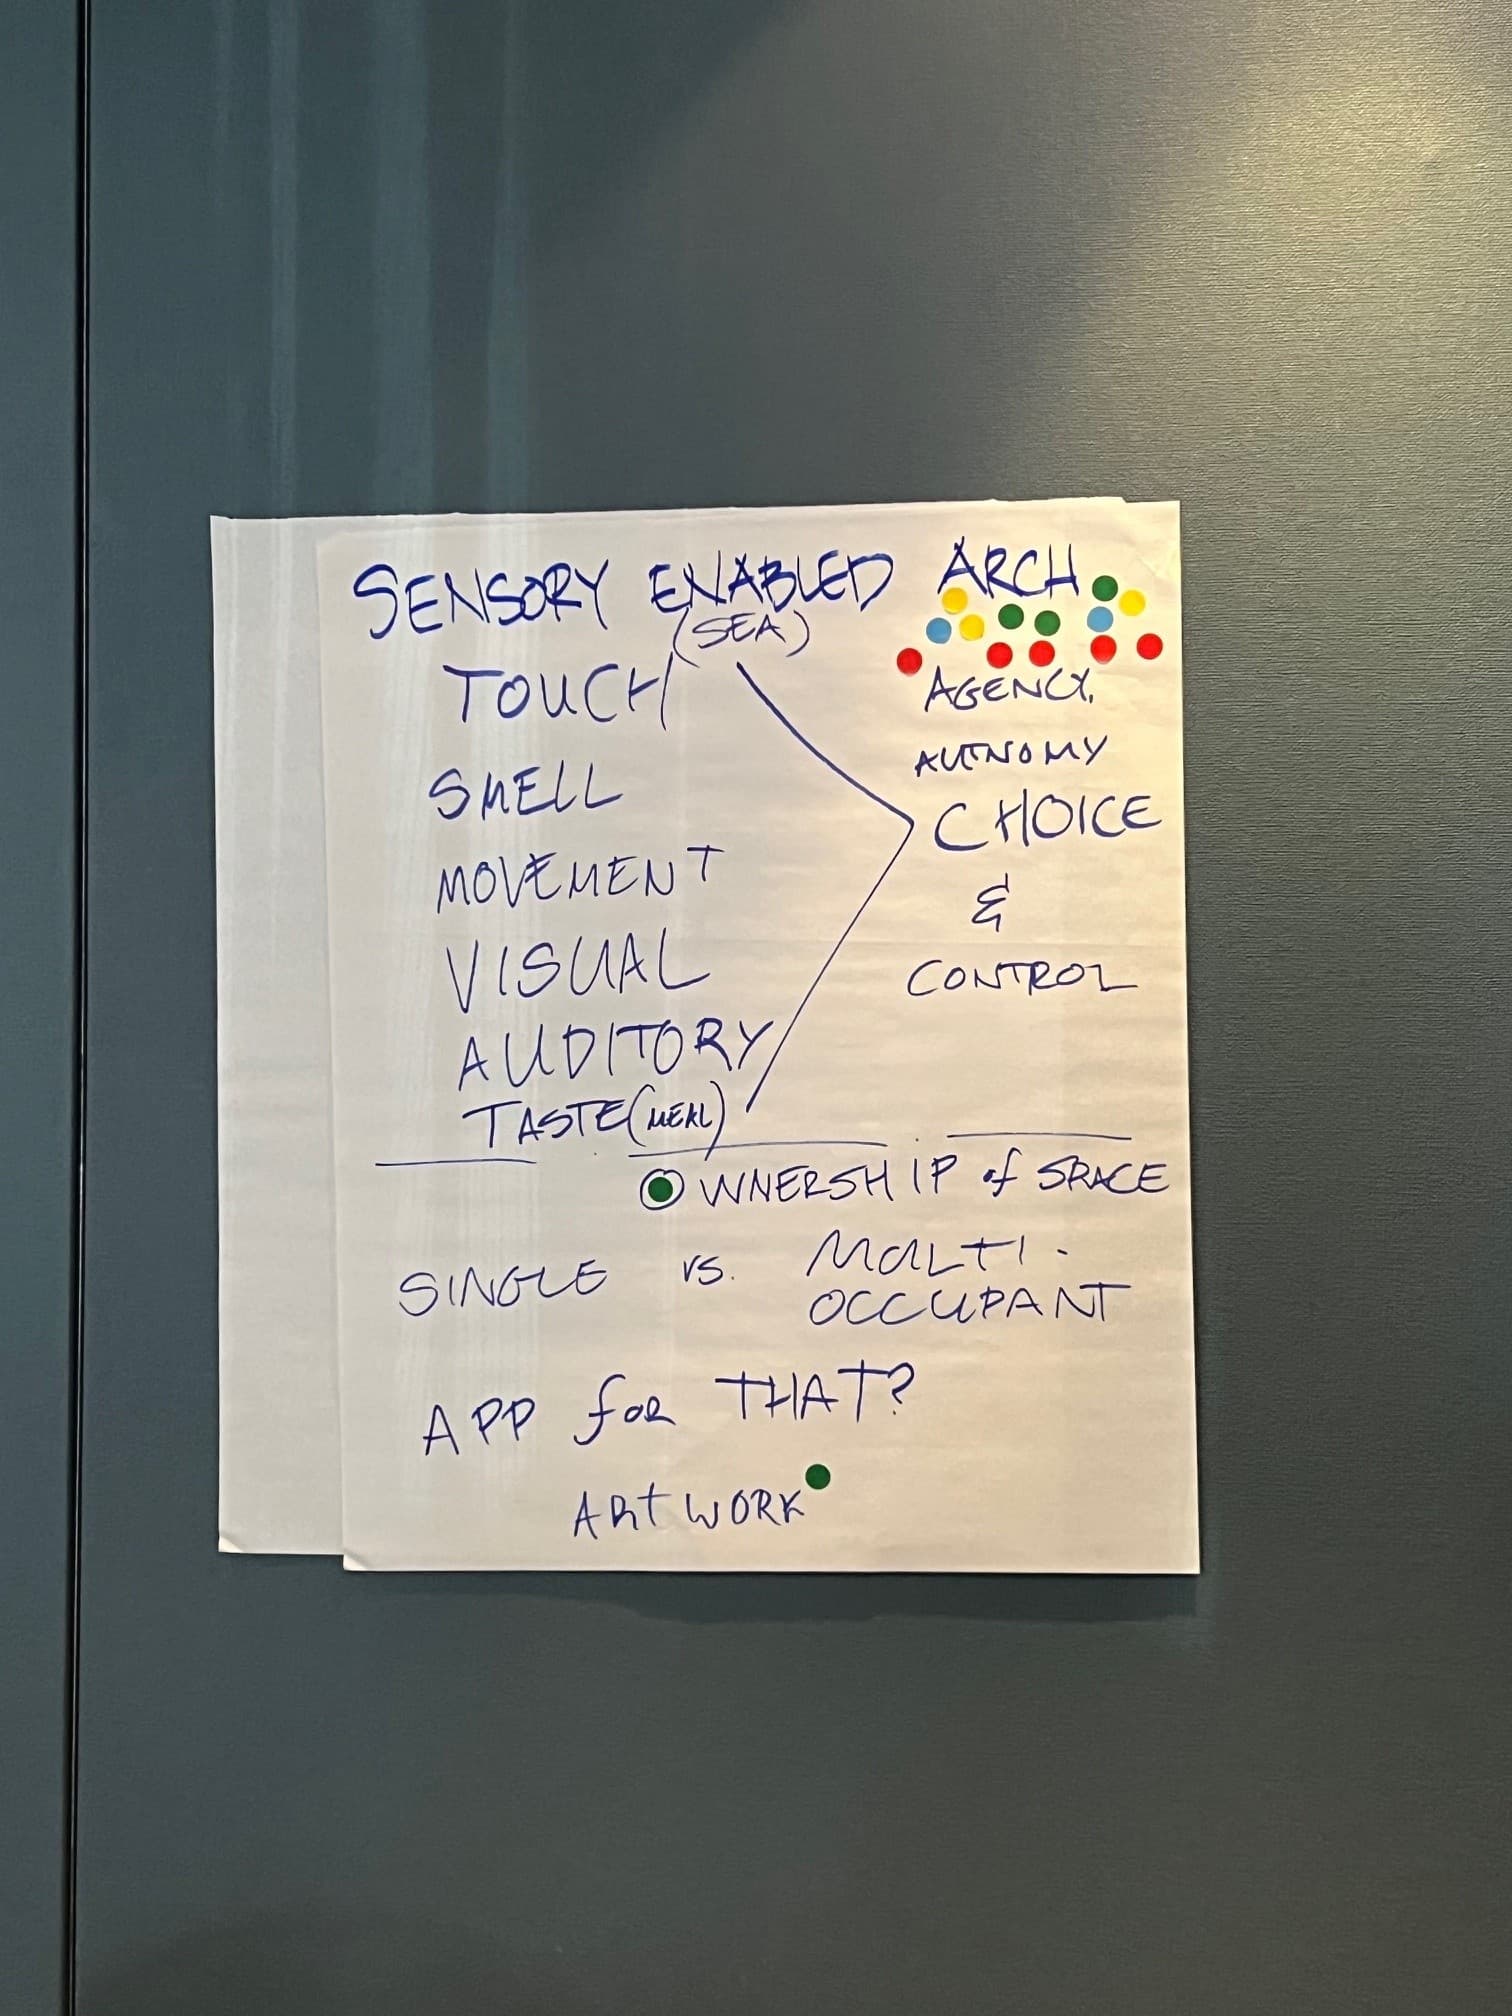 SENSORY ENABLED ARCH
(SEA)
TOUCH
SMELL
MOVEMENT
VISUAL
AUDITORY
TASTE (MEAL)
AGENCY,
AUTNOMY
CHOICE
&
CONTROL
OWNERSHIP of SPACE
SINGLE vs. MULTI-
OCCUPANT
APP foR THAT?
ARtWORK